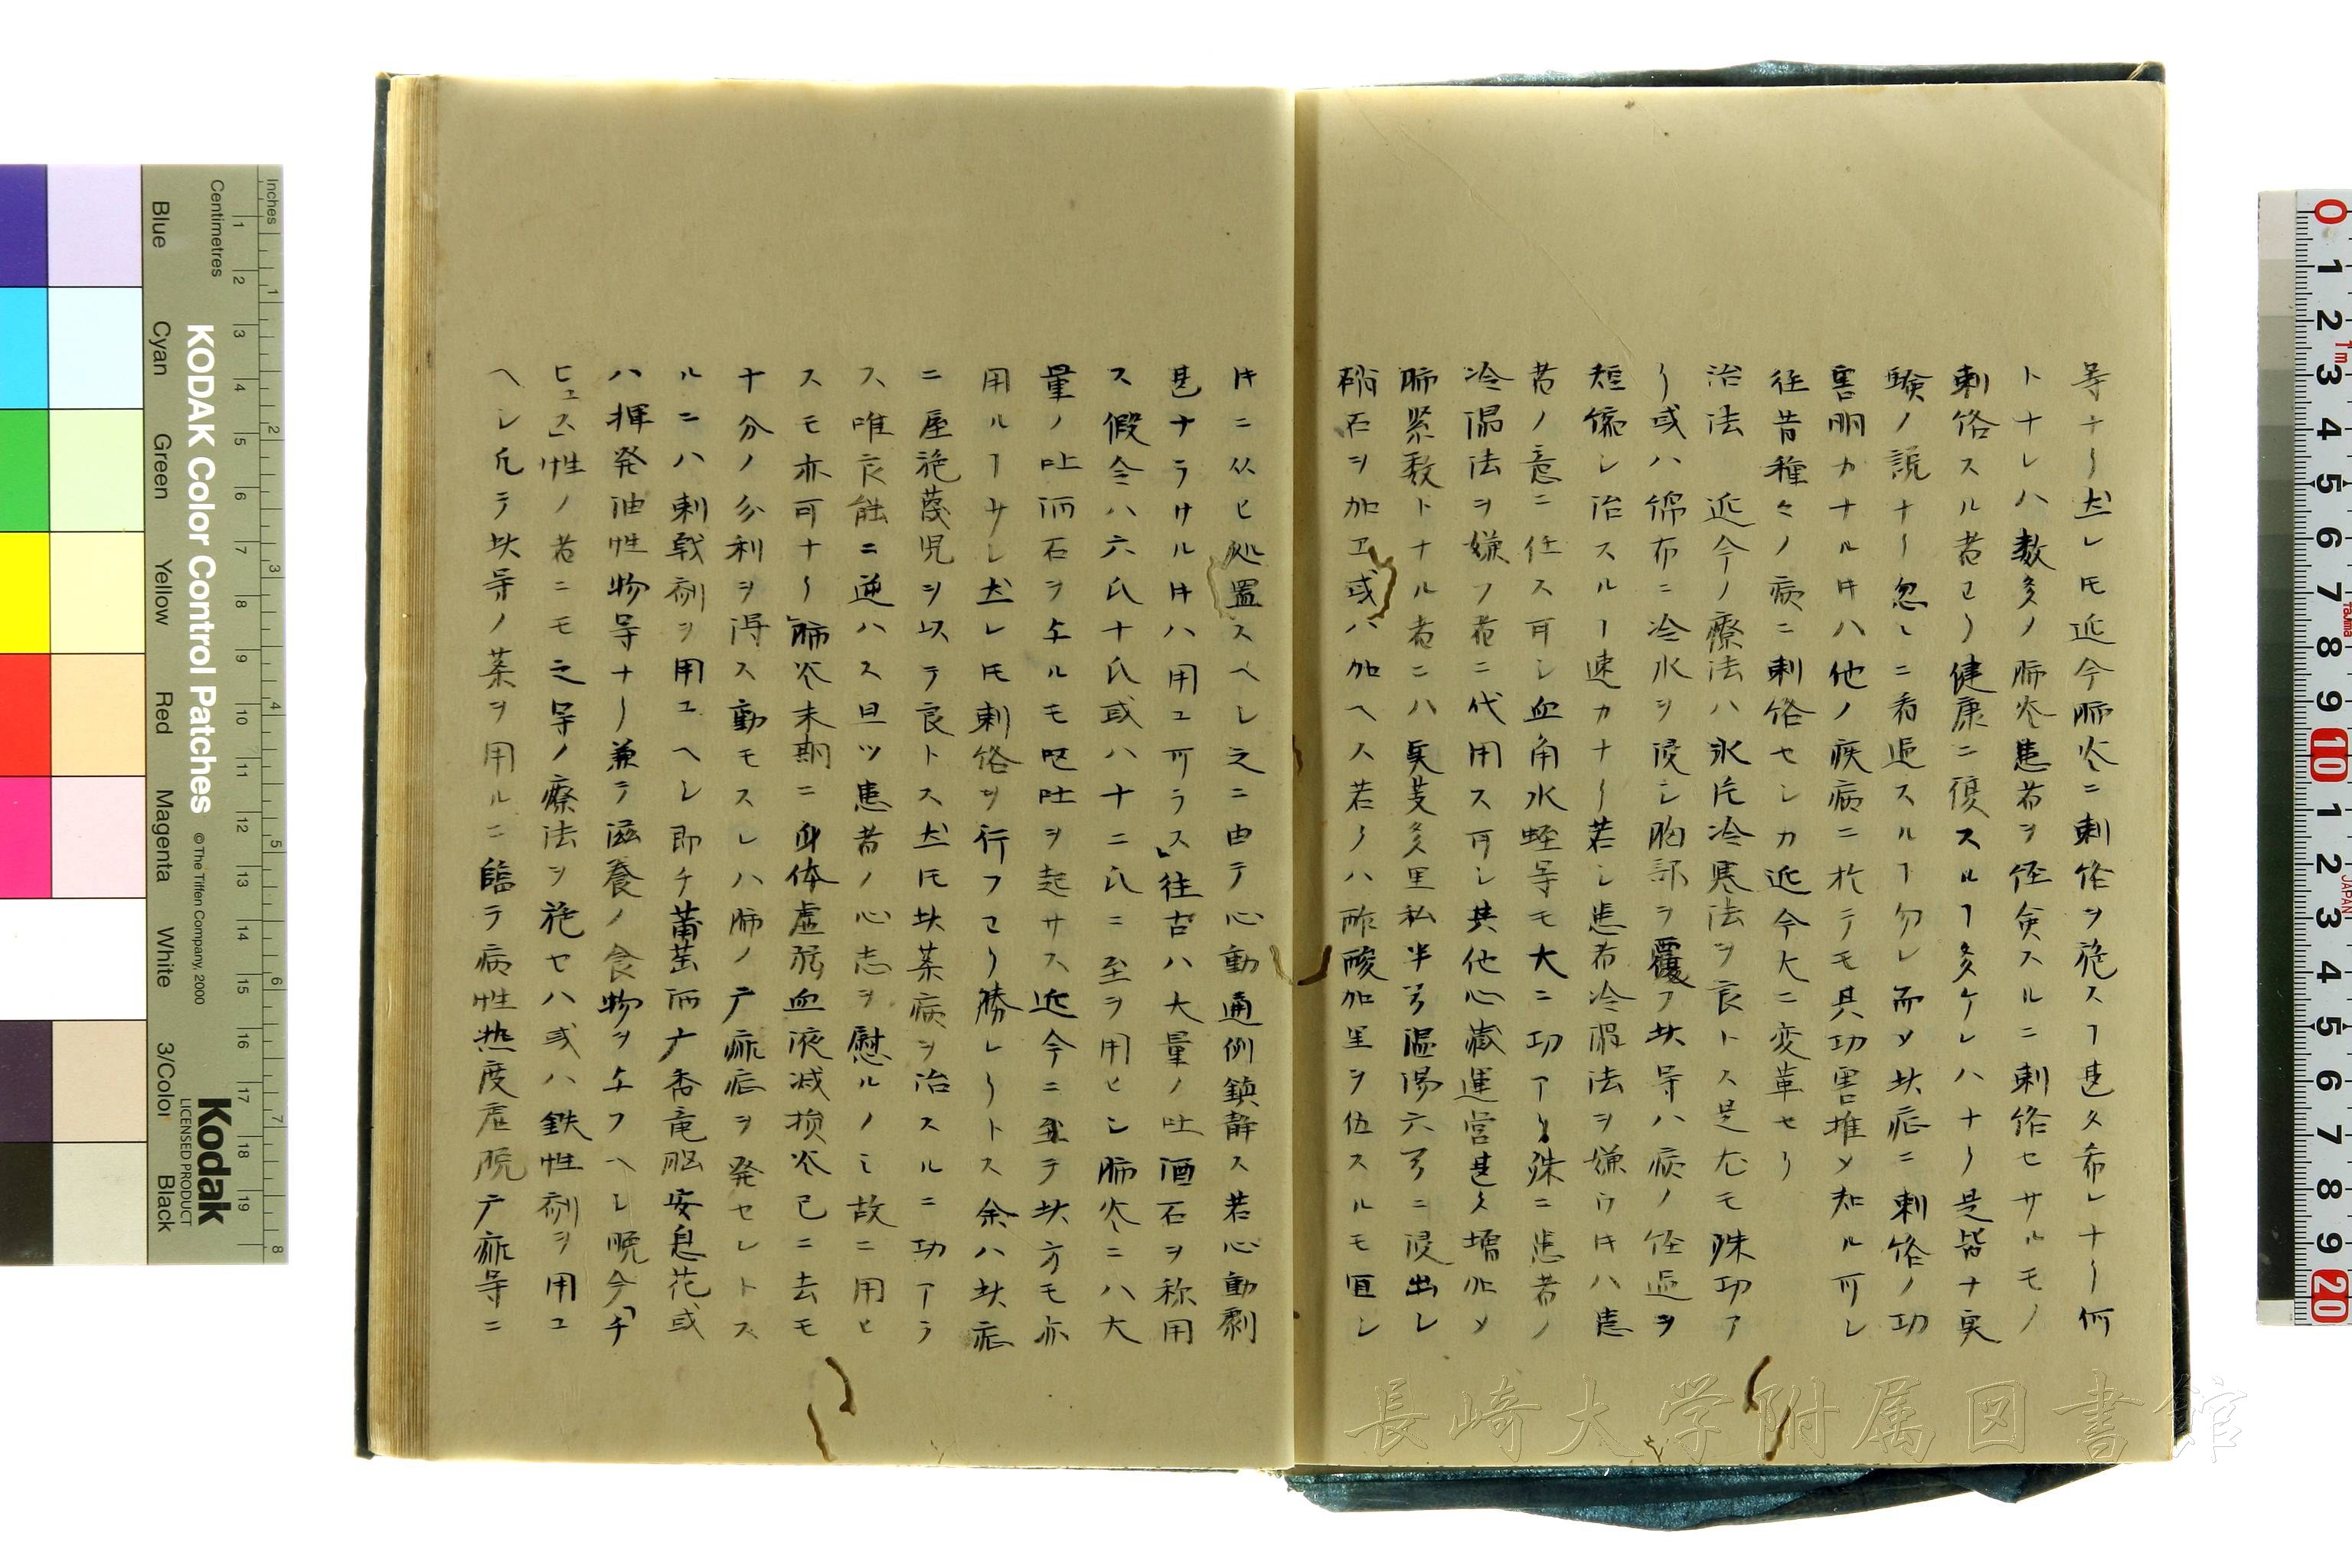 等ナリ𪜈近今肺炎ニ刺絡ヲ施スヿ甚タ希レナリ何
トナレハ数多ノ肺炎患者ヲ径験スルニ刺絡セサルモノ
刺絡スル者ヨリ健康ニ復スルヿ多ケレハナリ是皆ナ実
験ノ説ナリ忽レニ看過スルヿ勿レ而〆此症ニ刺絡ノ功
害明カナル㐧ハ他ノ疾病ニ於テモ其功害推〆知ル可シ
往昔種々ノ病ニ刺絡セシカ近今大ニ変革セリ
治法 近今ノ療法ハ氷片冷寒法ヲ良トス是尤モ殊功ア
リ或ハ綿布ニ冷水ヲ浸シ胸部ヲ覆フ此等ハ病ノ径過ヲ
短縮シ治スルヿ速カナリ若シ患者冷罨法ヲ嫌ウ㐧ハ患
者ノ意ニ任ス可シ血角水蛭等モ大ニ功アリ殊ニ患者ノ
冷温法ヲ嫌フ者ニ代用ス可シ其他心臓運営甚タ増加〆
肺緊数トナル者ニハ実芰多里私半弓温湯六弓ニ浸出シ
硝石ヲ加エ或ハ加ヘス若クハ酢酸加里ヲ伍スルモ宜シ
㐧ニ从ヒ処置スヘシ之ニ由テ心動通例鎮静ス若心動劇
甚ナラサル㐧ハ用ユ可ラス」往古ハ大量ノ吐酒石ヲ称用
ス假令ハ六氏十氏或ハ十二氏ニ至ヲ用ヒシ肺炎ニハ大
量ノ吐酒石ヲ与ルモ嘔吐ヲ起サス近今ニ至テ此方モ亦
用ルヿサレ𪜈刺絡ヲ行フヨリ勝レリトス余ハ此症
ニ屋施葠児ヲ以テ良トス𪜈此薬病ヲ治スルニ功アラ
ス唯良能ニ逆ハス旦ツ患者ノ心志ヲ慰ルノミ故ニ用ヒ
スモ亦可ナリ」肺炎末期ニ身体虚弱血液减損炎已ニ去モ
十分ノ分利ヲ得ス動モスレハ肺ノ广痲症ヲ発セレトス
ルニハ刺戟劑ヲ用ユヘシ即チ葡萄酒广香竜脳安息花或
ハ揮発油性物等ナリ兼テ滋養ノ食物ヲ与フヘシ晩今「チ
ヒュス」性ノ者ニモ之等ノ療法ヲ施セハ或ハ鉄性劑ヲ用ユ
ヘシ凡テ此等ノ薬ヲ用ルニ臨テ病性热度虚脱广痲等ニ
長崎大学附属図書館
KODAK Color Control Patches
© The Tiffen Company, 2000
Kodak
LICENSED PRODUCT
Inches
Centimetres
Blue Cyan Green Yellow Red Magenta White 3/Color Black
JAPAN